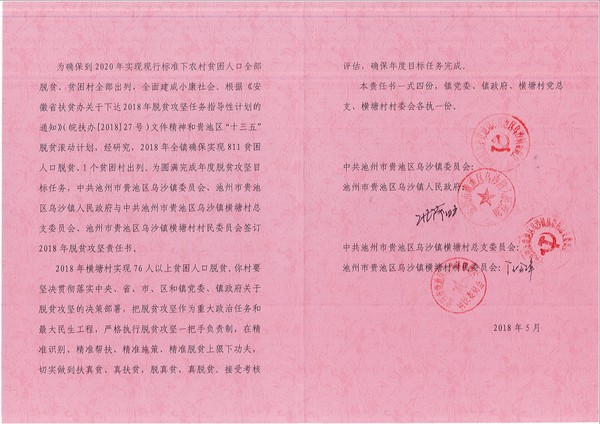 为确保到2020年实现现行标准下农村贫困人口全部
脱贫、贫困村全部出列，全面建成小康社会。根据《安
徽省扶贫办关于下达2018年脱贫攻坚任务指导性计划的
通知》（皖扶办[2018]27号）文件精神和贵池区“十三五”
脱贫滚动计划，经研究，2018年全镇确保实现811贫困
人口脱贫、1个贫困村出列。为圆满完成年度脱贫攻坚目
标任务，中共池州市贵池区乌沙镇委员会、池州市贵池
区乌沙镇人民政府与中共池州市贵池区乌沙镇横塘村总
支委员会、池州市贵池区乌沙镇横塘村村民委员会签订
2018年脱贫攻坚责任书。
2018年横塘村实现76人以上贫困人口脱贫。你村要
坚决贯彻落实中央、省、市、区和镇党委、镇政府关于
脱贫攻坚的决策部署，把脱贫攻坚作为重大政治任务和
最大民生工程，严格执行脱贫攻坚一把手负责制，在精
准识别、精准帮扶、精准施策、精准脱贫上狠下功夫，
切实做到扶真贫、真扶贫，脱真贫、真脱贫。接受考核
评估，确保年度目标任务完成。
本责任书一式四份，镇党委、镇政府、横塘村党总
支、横塘村村委会各执一份。
中共池州市贵池区乌沙镇委员会：
池州市贵池区乌沙镇人民政府：
中共池州市贵池区乌沙镇横塘村总支委员会：
池州市贵池区乌沙镇横塘村村民委员会：
村民委员会
2018年5月